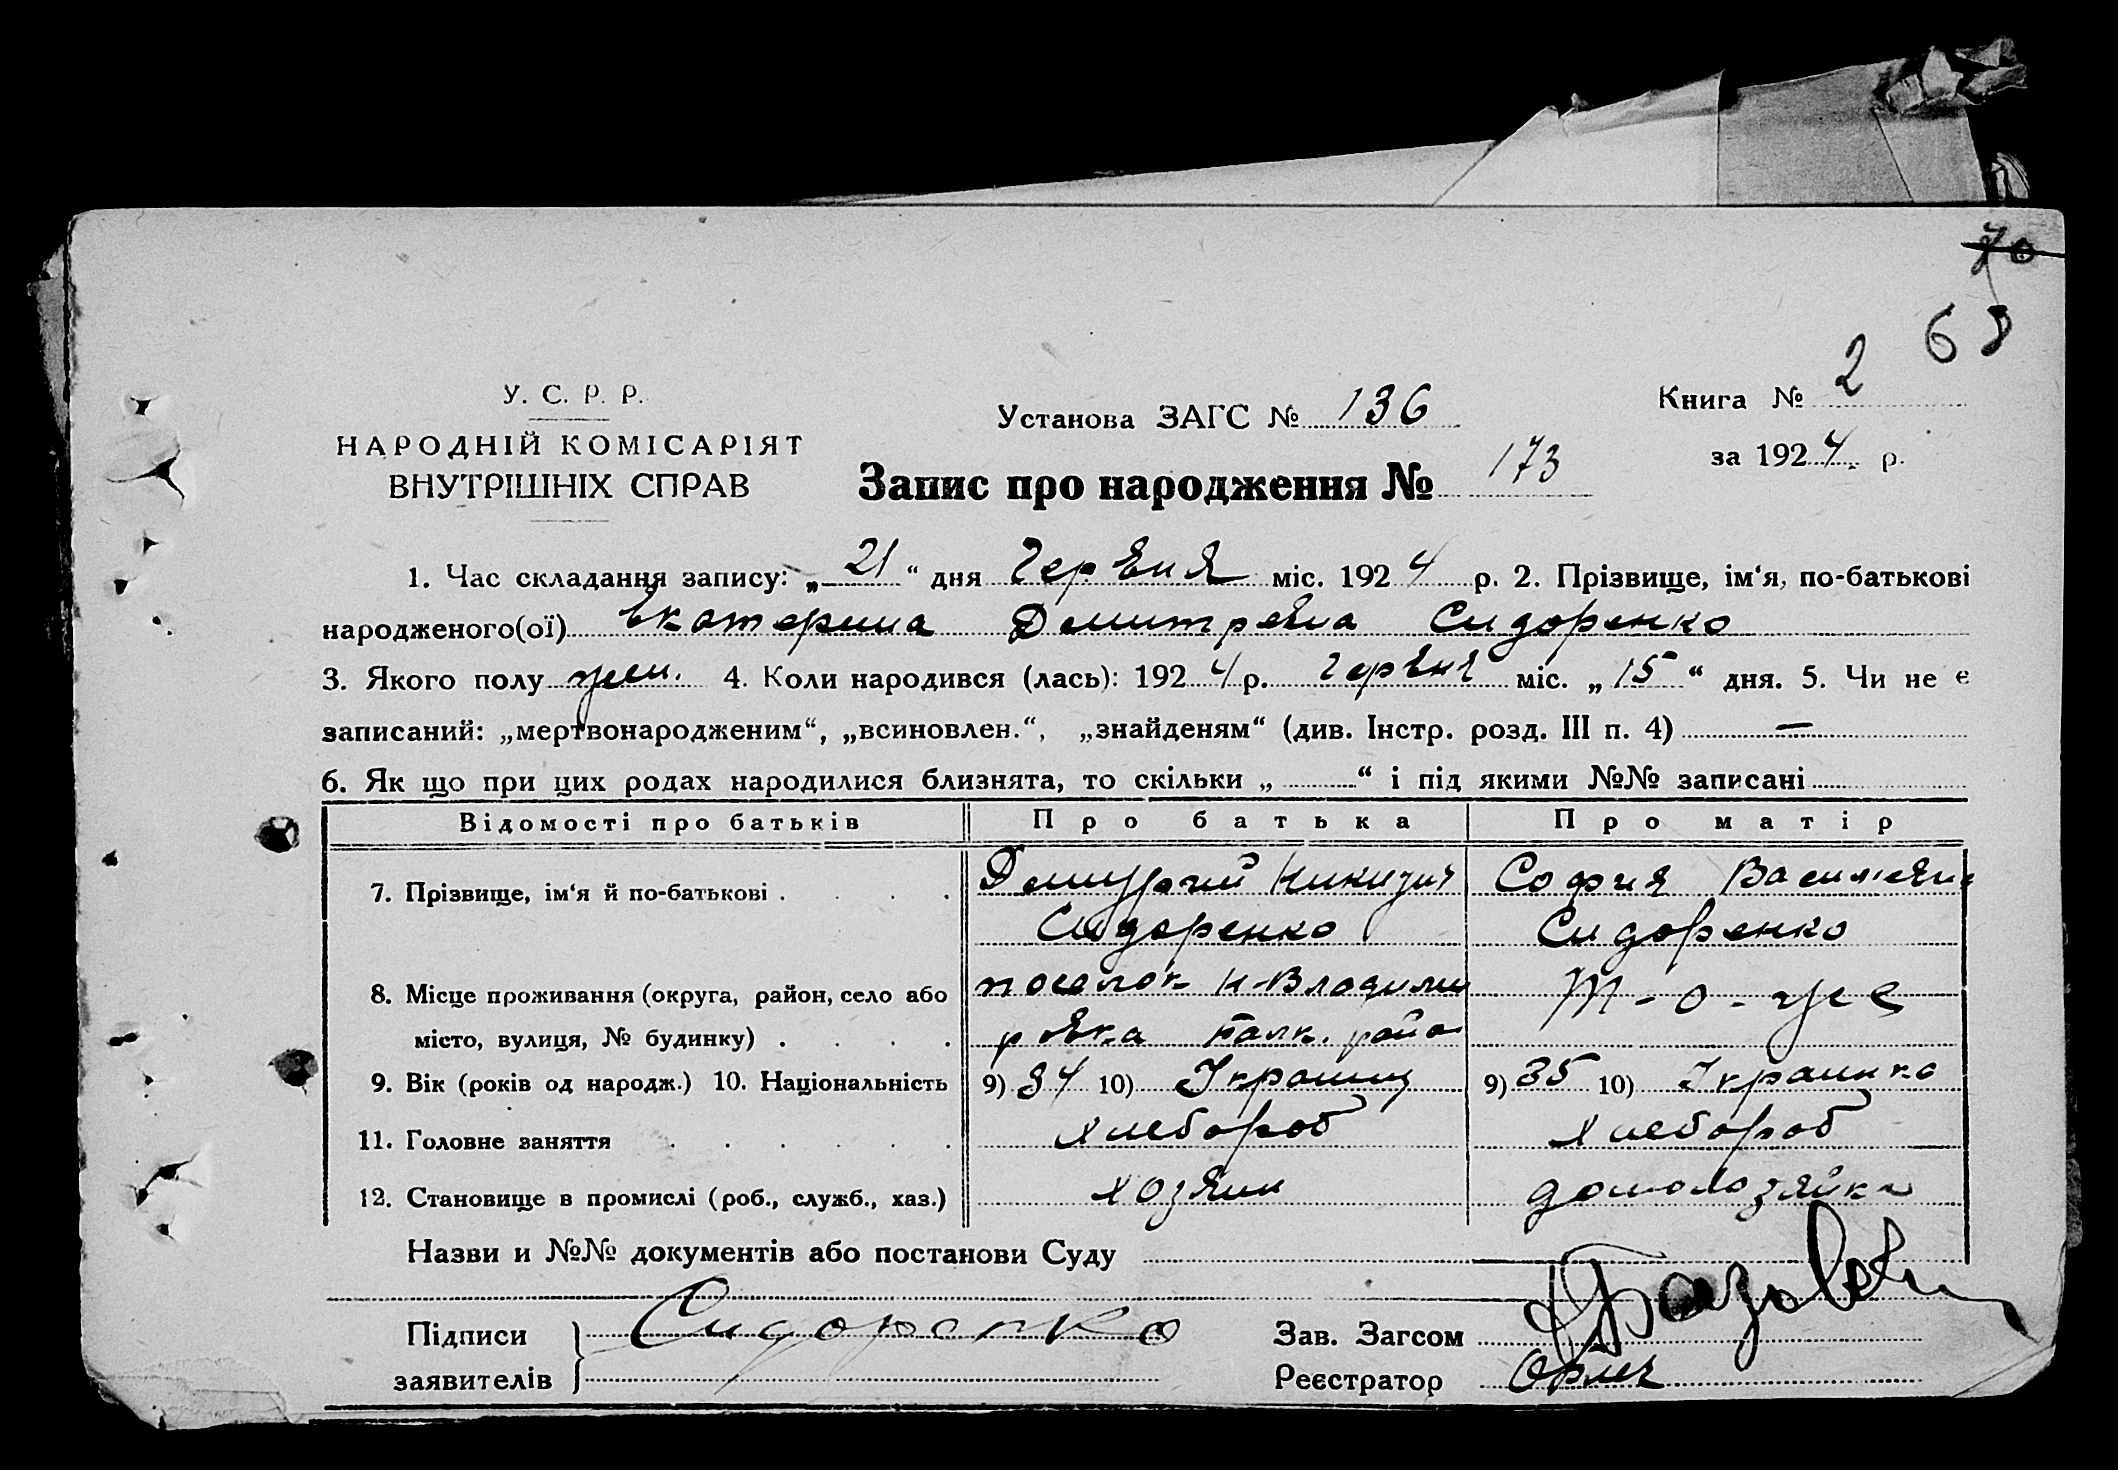 70
68
У. С. Р. Р.
НАРОДНІЙ КОМІСАРІЯТ
ВНУТРІШНІХ СПРАВ
Установа ЗАГС № 136
Книга № 2
за 1924 р.
Запис про народження № 173
1. Час складання запису: „21“ дня Червня міс. 1924 р. 2. Прізвище, ім‘я, по-батькові
народженого(ої) Екатерина Димитрєвна Сидоренко
3. Якого полу жен. 4. Коли народився (лась): 1924 р. червня міс. „15“ дня. 5. Чи не є
записаний: „мертвонародженим“, „всиновлен.“, „знайденям“ (див. Інстр. розд. III п. 4) —
6. Як що при цих родах народилися близнята, то скільки „ “ і під якими №№ записані
Відомості про батьків Про батька Про матір
7. Прізвище, ім‘я й по-батькові Димитрий София
Сидоренко Сидоренко
8. Місце проживання (округа, район, село або поселок Н-Владими т-о-же
місто, вулиця, № будинку) ровка район
9. Вік (років од народж.) 10. Національність 9) 34 10) Украинец 9) 35 10) Украинка
11. Головне заняття хлебороб хлебороб
12. Становище в промислі (роб., служб., хаз.) хозяин домохозяйка
Назви и №№ документів або постанови Суду
Підписи Сидоренко Зав. Загсом
заявителів Реєстратор